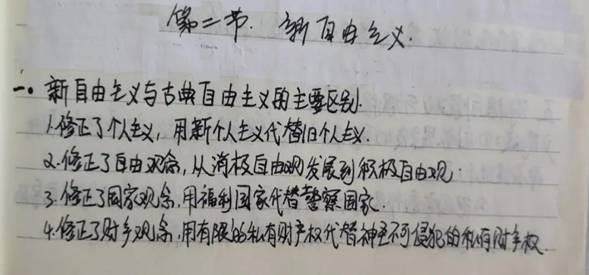 第二节. 新自由主义.
一. 新自由主义与古典自由主义的主要区别.
1.修正了个人主义, 用新个人主义代替旧个人主义.
2.修正了自由观念, 从消极自由观发展到积极自由观.
3.修正了国家观念, 用福利国家代替警察国家.
4.修正了财产观念, 用有限的私有财产权代替神圣不可侵犯的私有财产权.